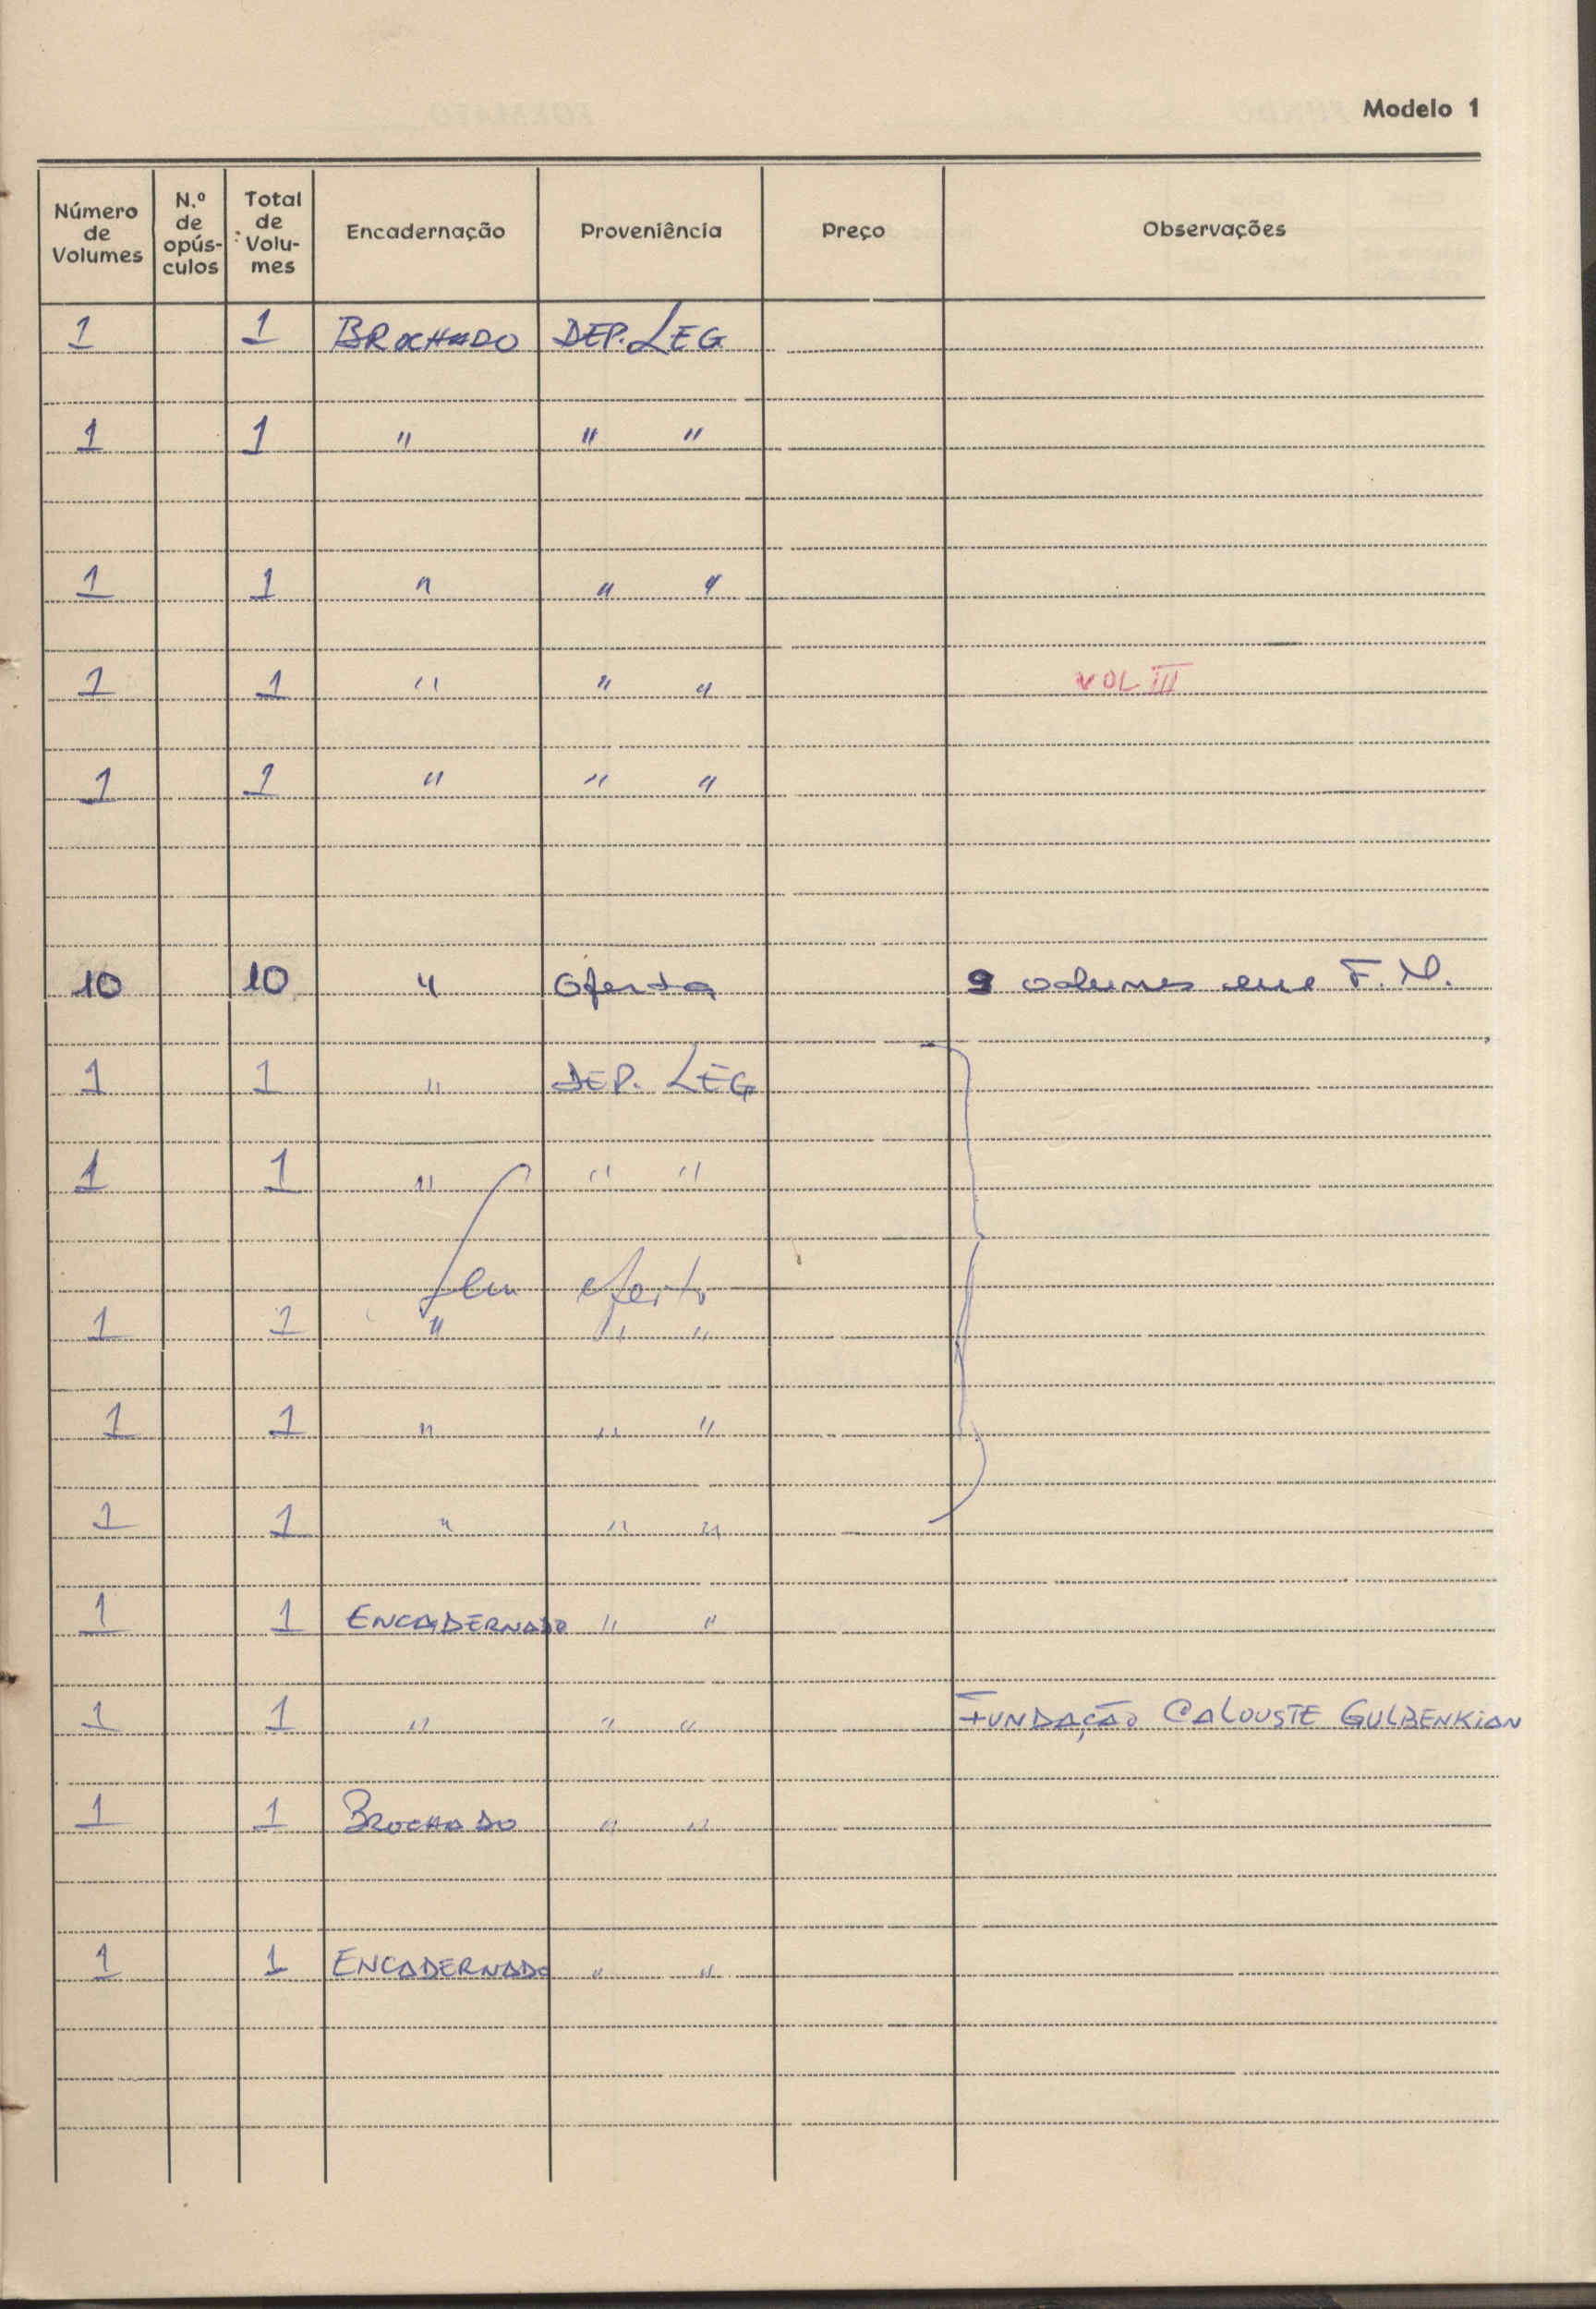 Modelo 1
Número de Volumes N.º de opús-culos Total de Volu-mes Encadernação Proveniência Preço Observações
1 1 BROCHADO DEP. LEG
1 1 " " "
1 1 " " "
1 1 " " " VOL III
1 1 " " "
10 10 " Oferta 9 volumes em F.N.
1 1 " DEP. LEG
1 1 " " "
Sem efeito
1 1 " " "
1 1 " " "
1 1 " " "
1 1 ENCADERNADO " "
1 1 " " " FUNDAÇÃO CALOUSTE GULBENKIAN
1 1 BROCHADO " "
1 1 ENCADERNADO " "